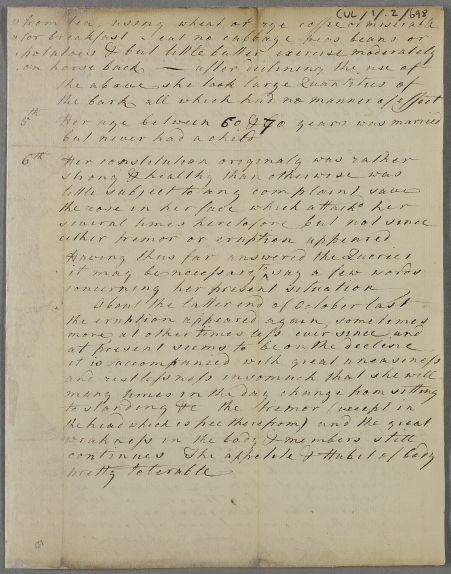 CUL/1/.2/698
from tea, using wheat or rye coffe or
for breakfast . eat no cabbage peas beans or
potatois & but little butter exercise moderately
on horse back — after declining the use of
the above she took large Quantities of
the bark all which had no manner of effect
5th Her age between 60 & 70 years was married
but never had a child
6th Her constitution originaly was rather
strong & healthy than otherwise was
little subject to any complaint save
the rose in her face which attackd her
several times heretofore but not since
either tremor or eruption appeared
Having thus far answered the Queries
it may be necessary to say a few words
concerning her present situation
About the latter end of October last
the eruption appeared again sometimes
more, at other times less ever since and
at present seems to be on the decline
it is accompanied with great uneasiness
and restlessness insomuch that she will
many times in the day change from sitting
to standing &c the tremor (except in
the head which is free therefrom) and the great
weakness in the body & members still
continues The appetite & Habit of body
pretty tolerable